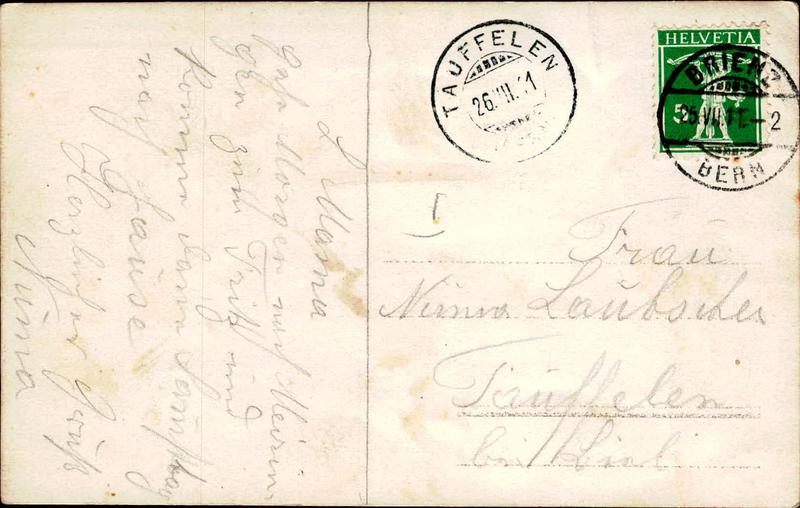 L Mama
Gehe Morgen nach Meirin
gen zum Fritz und
komme dann Samstag
nach Hause
Herzlicher Gruß
Numa
TÄUFFELEN
26.VII.11
HELVETIA
5
BRIENZ
25.VII.11.-2
BERN
I
Frau
Numa Laubscher
Täuffelen
bei Biel